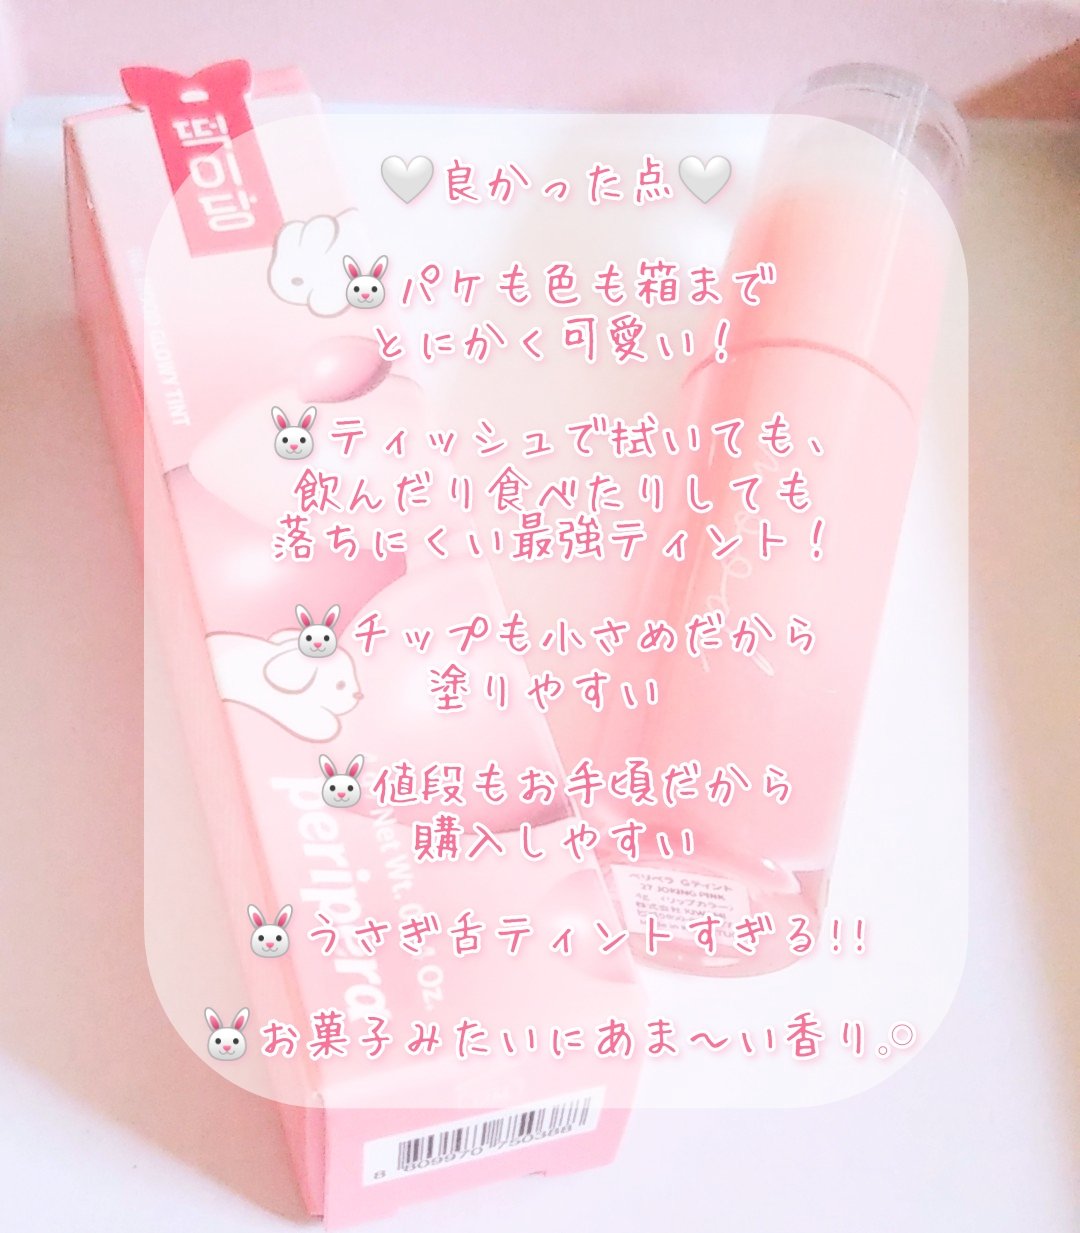 🤍良かった点🤍
🐰パケも色も箱まで
とにかく可愛い！
🐰ティッシュで拭いても、
飲んだり食べたりしても
落ちにくい最強ティント！
🐰チップも小さめだから
塗りやすい
🐰値段もお手頃だから
購入しやすい
🐰うさぎ舌ティントすぎる!!
🐰お菓子みたいにあま〜い香り𓈒𓏸
GLOWY TINT
peripera
Net Wt.
Oz.
ペリペラ Gティント
27 JOKING PINK
8 809970 750388